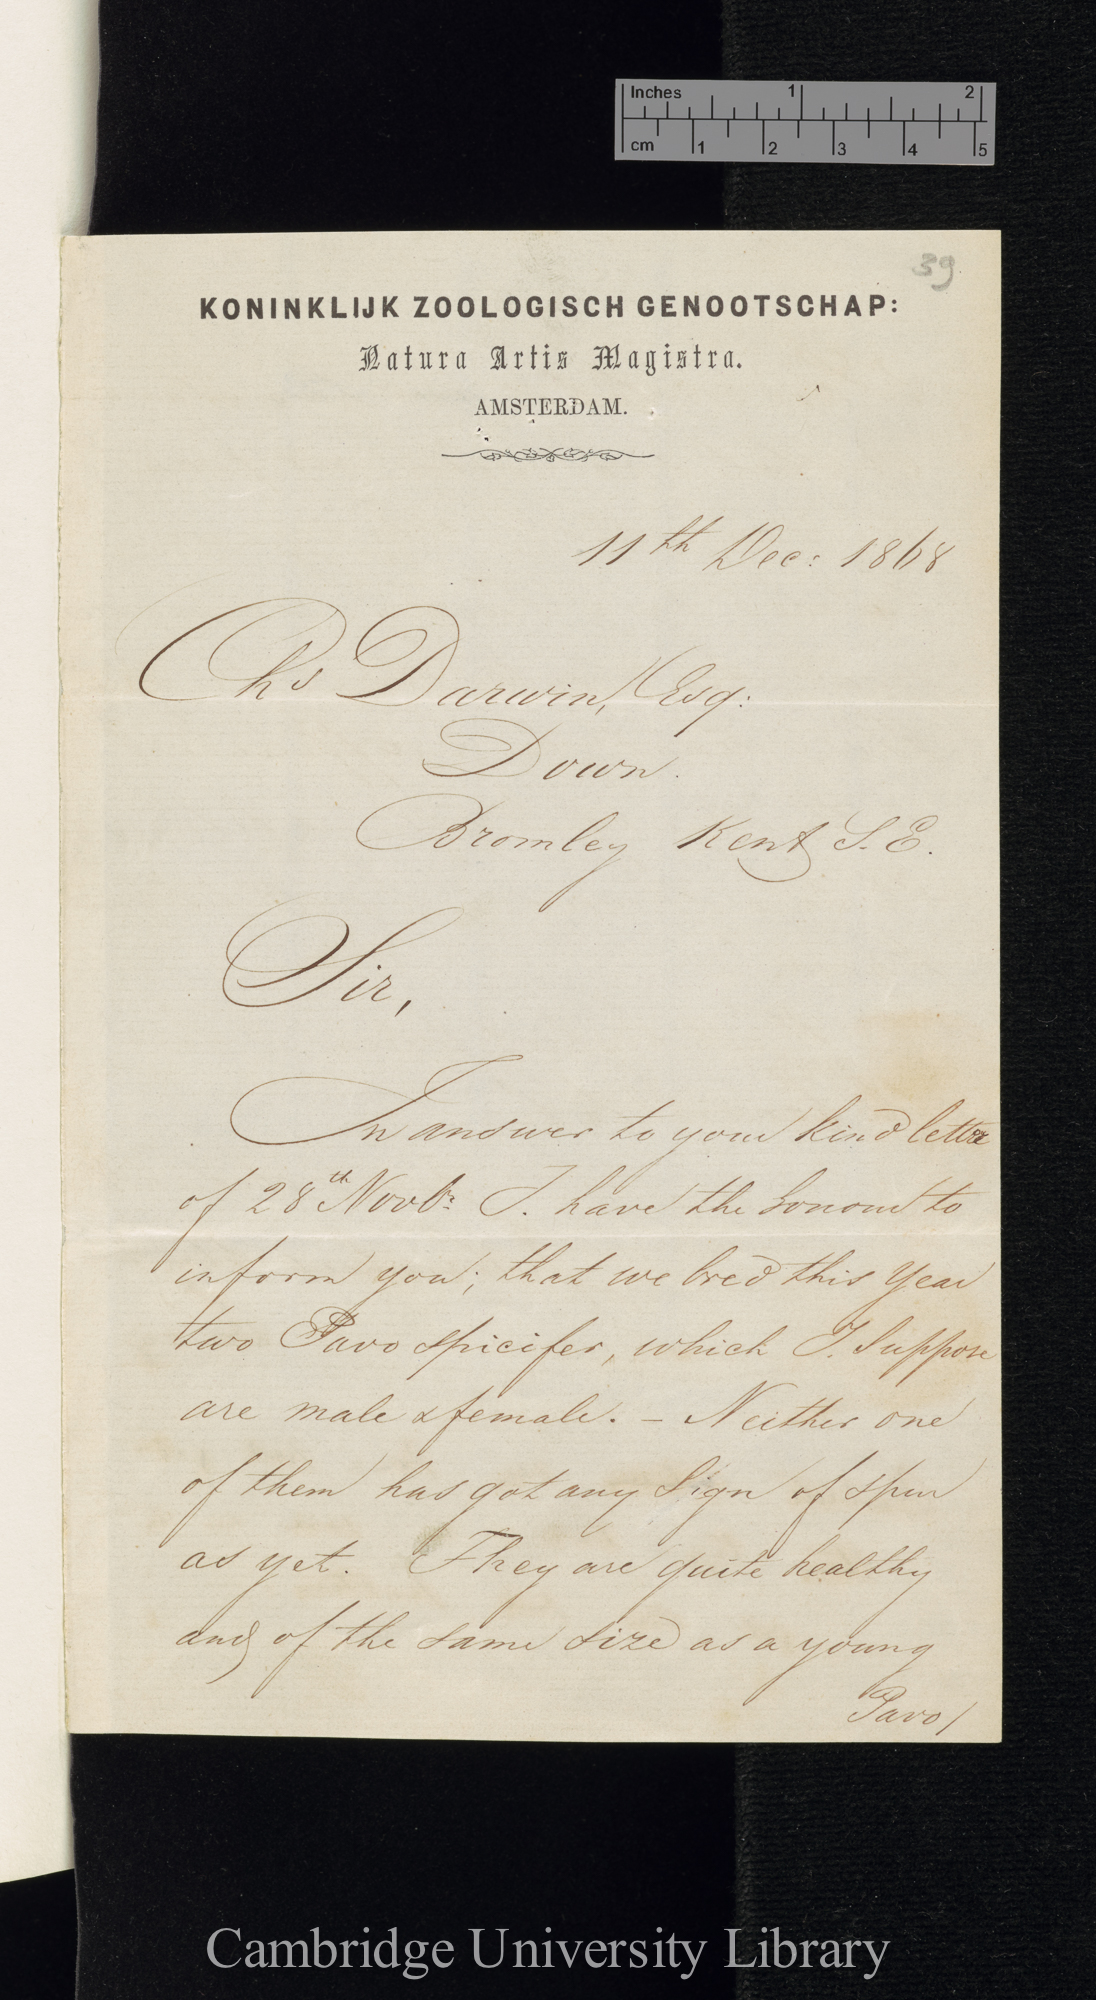 Inches 1 2
cm 1 2 3 4 5
39
KONINKLIJK ZOOLOGISCH GENOOTSCHAP:
Natura Artis Magistra.
AMSTERDAM.
11th Dec: 1868
Chs Darwin, Esq:
Down.
Bromley Kent S.E.
Sir,
In answer to your kind letter
of 28th Novbr: I. have the honour to
inform you; that we bred this Year
two Pavo spicifer, which I. suppose
are male & female. – Neither one
of them has got any sign of spur
as yet. They are quite healthy
and of the same size as a young
Pavo/
Cambridge University Library